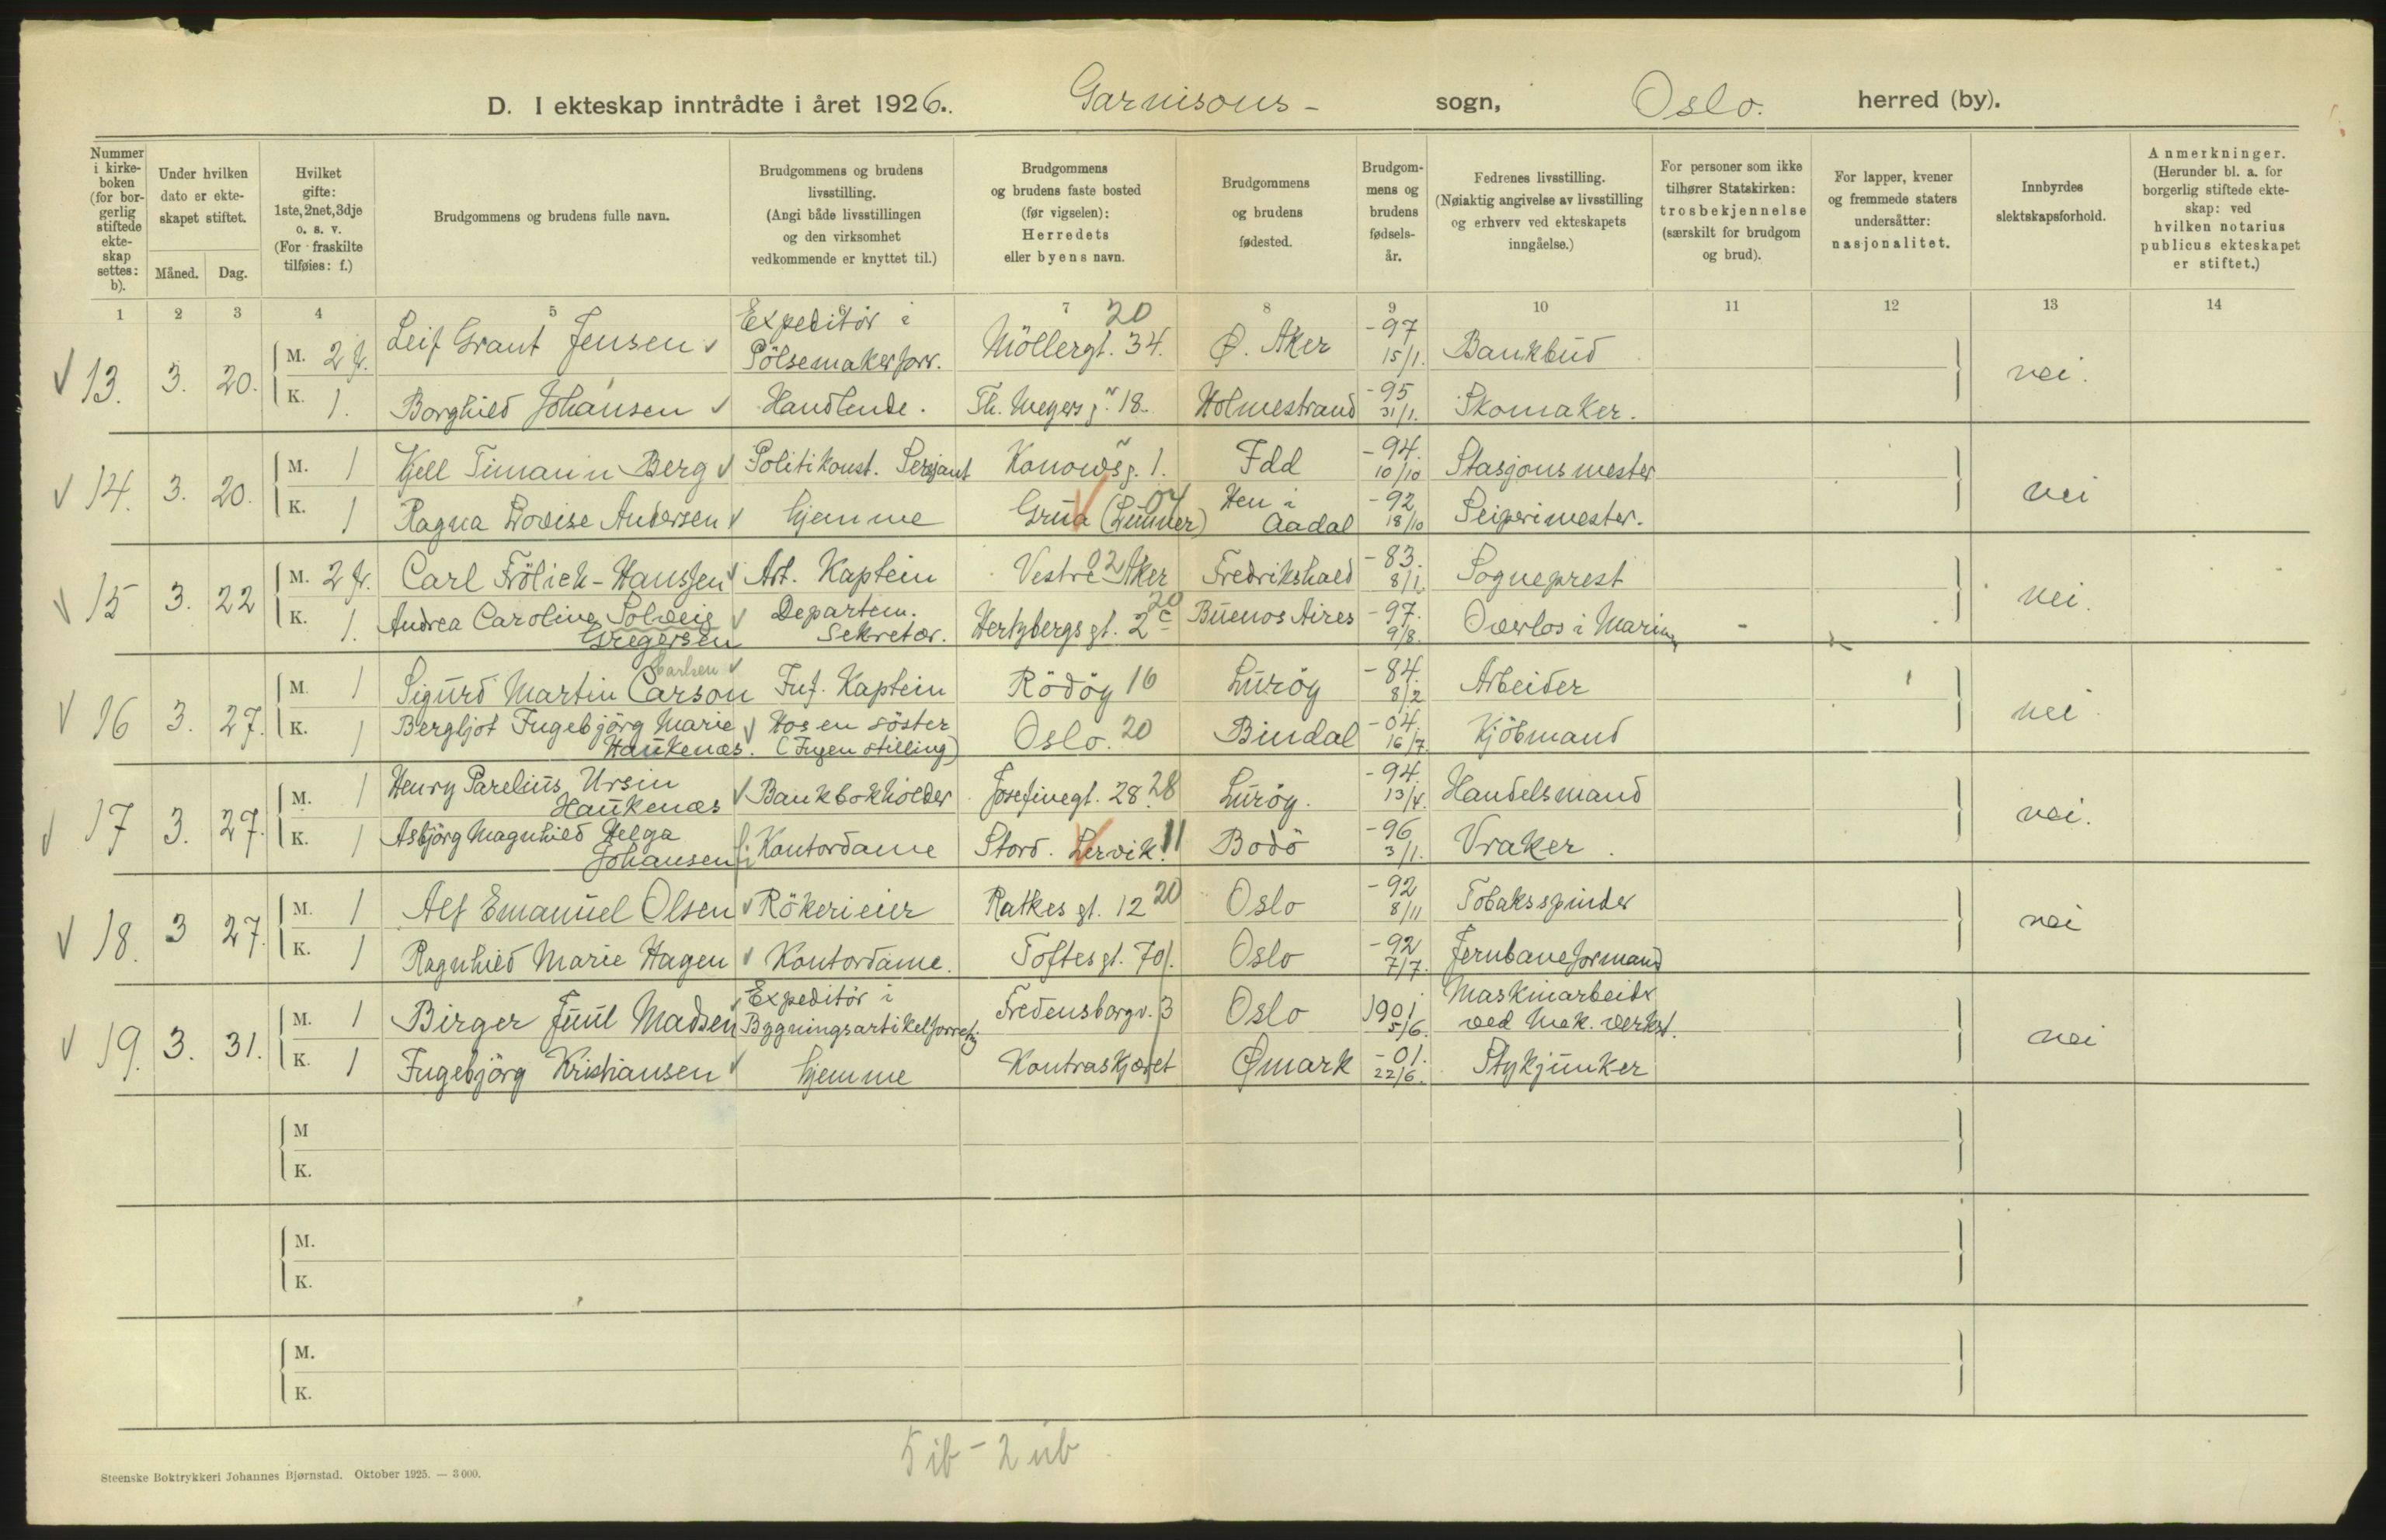 D. I ekteskap inntrådte i året 1926. Garnisons- sogn, Oslo. herred (by).
Nummer i kirkeboken (for borgerlig stiftede ekteskap settes: b).
Under hvilken dato er ekteskapet stiftet.
Måned. Dag.
Hvilket gifte: 1ste, 2net, 3dje o. s. v. (For fraskilte tilføies: f.)
Brudgommens og brudens fulle navn.
Brudgommens og brudens livsstilling. (Angi både livsstillingen og den virksomhet vedkommende er knyttet til.)
Brudgommens og brudens faste bosted (før vigselen): Herredets eller byens navn.
Brudgommens og brudens fødested.
Brudgommens og brudens fødselsår.
Fedrenes livsstilling. (Nøiaktig angivelse av livsstilling og erhverv ved ekteskapets inngåelse.)
For personer som ikke tilhører Statskirken: trosbekjennelse (særskilt for brudgom og brud).
For lapper, kvener og fremmede staters undersåtter: nasjonalitet.
Innbyrdes slektskapsforhold.
Anmerkninger. (Herunder bl. a. for borgerlig stiftede ekteskap: ved hvilken notarius publicus ekteskapet er stiftet.)
1 2 3 4 5 6 7 8 9 10 11 12 13 14
13. 3. 20. M. 2 f. Leif Grant Jensen Expeditör i Pölsemakerforr. Möllergt. 34. 20 Ø. Aker -97 15/1. Bankbud nei.
K. 1. Borghild Johansen Handlende. Th. Meyers g. 18. Holmestrand -95 31/1. Skomaker.
14. 3. 20. M. 1 Kjell Timann Berg Politikonst. Sersjant Konowsg. 1. Fdd -94. 10/10 Stasjonsmester nei
K. 1 Ragna Lovise Andersen hjemme Grua (Lunner) 04 Hen i Aadal -92 18/10 Seiperimester.
15 3. 22 M. 2 f. Carl Frölich-Hanssen Art. Kaptein Vestre Aker 02 Fredrikshald -83. 8/1. Sogneprest nei.
K. 1. Andrea Caroline Solveig Gregersen Departem. Sekretær. Hertzbergs gt. 2c 20 Buenos Aires -97. 9/8. Overlos i Marinen -
16 3. 27. M. 1 Sigurd Martin Carson Carlsen Inf. Kaptein Rödöy 16 Luröy -84. 8/2 Arbeider nei.
K. 1 Bergljot Ingebjörg Marie Haukenæs. Hos en söster (Ingen stilling) Oslo. 20 Bindal -04. 16/7. Kjöbmand
17 3. 27. M. 1 Henry Parelius Ursin Haukenæs Bankbokholder Josefinegt. 28. 28 Luröy. -94. 13/4. Handelsmand nei.
K. 1 Asbjörg Magnhild Helga Johansen Kontordame Stord. Lervik. 11 Bodö -96 3/1. Vraker.
18. 3 27. M. 1 Alf Emanuel Olsen Rökerieier Ratkes gt. 12 20 Oslo -92 8/11 Tobaksspinder nei
K. 1 Ragnhild Marie Hagen Kontordame. Toftes gt. 70. Oslo -92 7/7. Jernbaneformand
19. 3. 31. M. 1 Birger Juul Madsen Expeditör i Bygningsartikelforretn. Fredensborgv. 3 Oslo 1901 5/6. Maskinarbeider ved Mek. verkst. nei
K. 1 Ingebjörg Kristiansen hjemme Kontraskjæret Ømark -01. 22/6. Stykjunker
M
K.
M.
K.
M.
K.
5 ib - 2 ub
Steenske Boktrykkeri Johannes Bjørnstad. Oktober 1925. — 3 000.